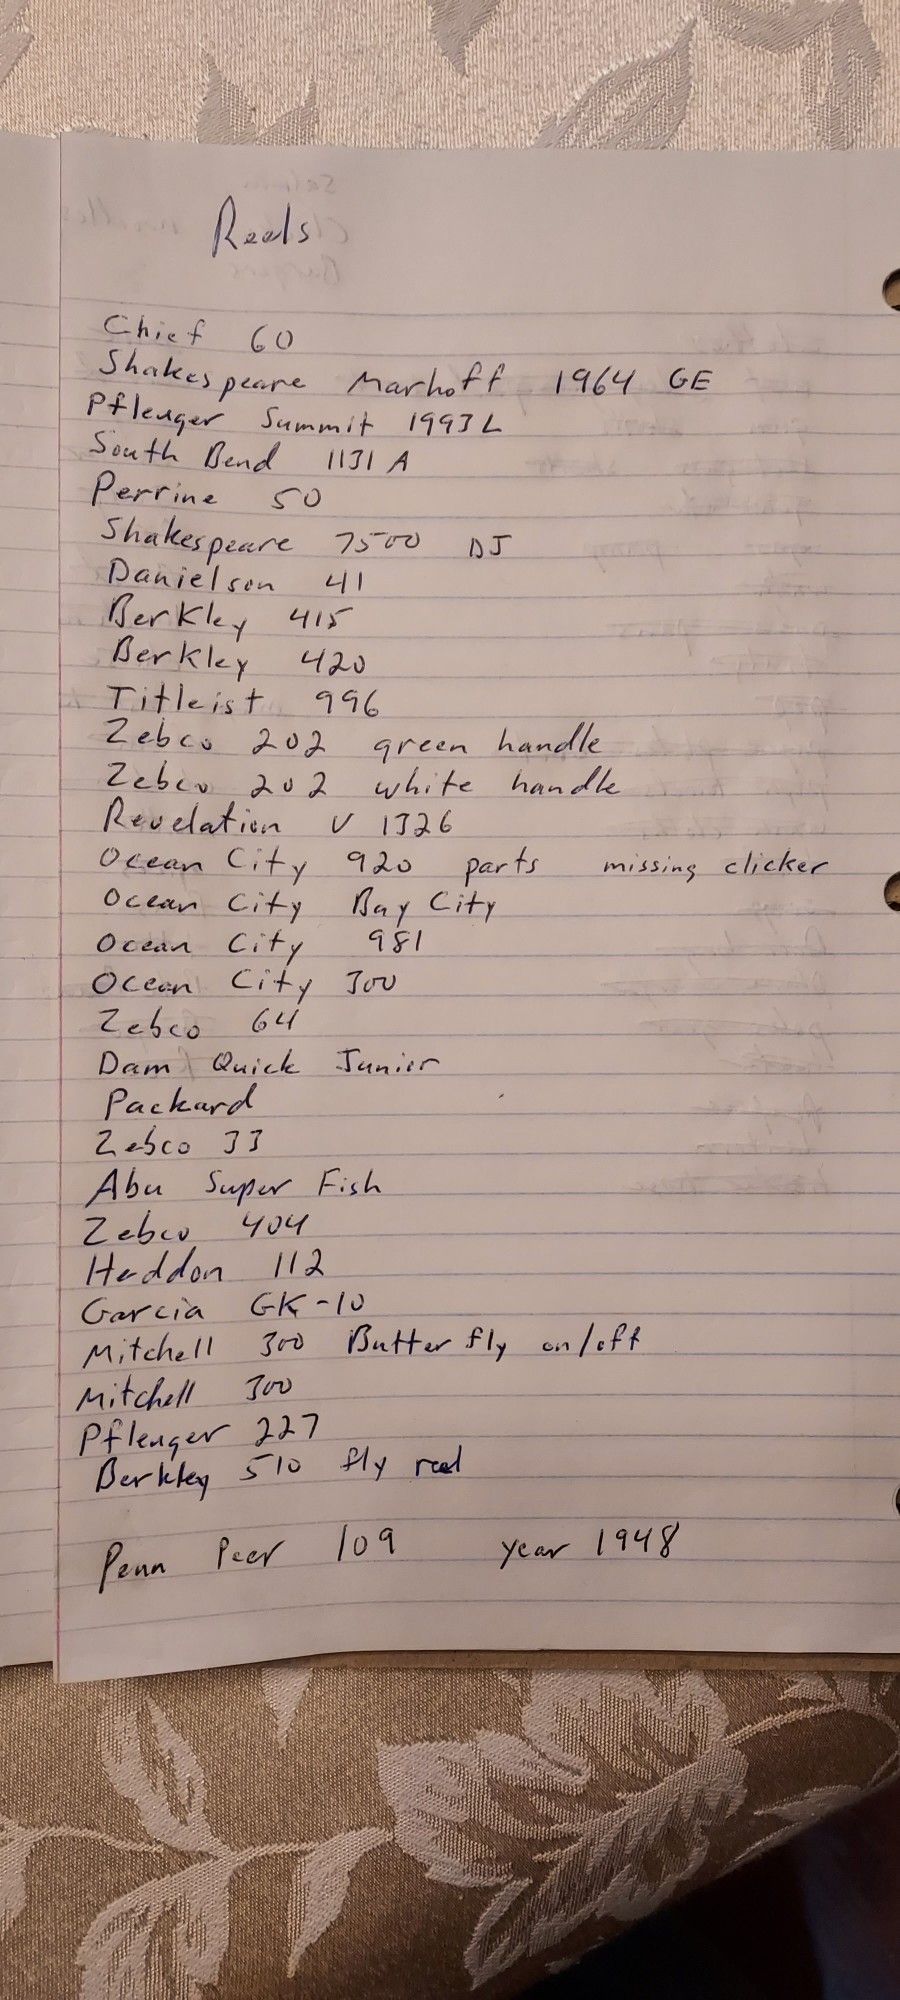 Reels
Chief 60
Shakespeare Marhoff 1964 GE
Pflenger Summit 1993L
South Bend 1131 A
Perrine 50
Shakespeare 7500 DJ
Danielson 41
Berkley 415
Berkley 420
Titleist 996
Zebco 202 green handle
Zebco 202 white handle
Revelation V 1326
Ocean City 920 parts missing clicker
Ocean City Bay City
Ocean City 981
Ocean City 300
Zebco 64
Dam Quick Junior
Packard
Zebco 33
Abu Super Fish
Zebco 404
Heddon 112
Garcia GK-10
Mitchell 300 Butterfly on/off
Mitchell 300
Pflenger 227
Berkley 510 fly reel
Penn Peer 109 year 1948